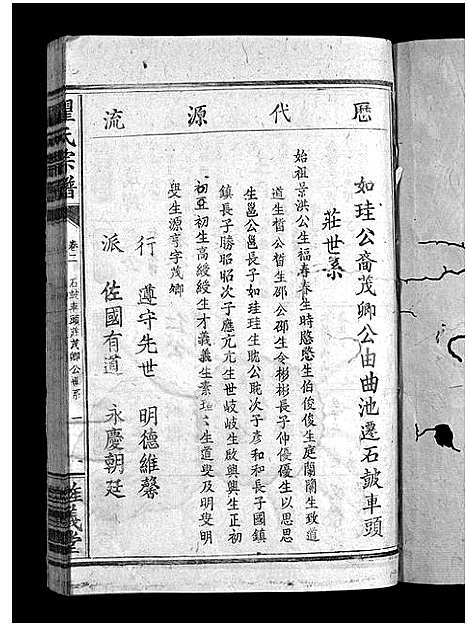 歷代源流
如珪公裔茂卿公由曲池遷石皷車頭
莊世系
始祖景洪公生福壽春生時愍愍生伯俊俊生庭蘭蘭生致道
道生晳公晳生邵公邵生令彬彬長子仲優優生以思思
生邕公邕長子如珪珪生耽公耽次子彥和和長子國鎮
鎮長子勝昭昭次子應亢亢生世岐岐生啟與與生正初
初亞初生高綬綬生才義義生素 生道叟及明叟明
叟生源亨字茂卿
行 遵守先世 明德維馨
派 佐國有道 永慶朝廷
瞿氏宗譜
卷二
石皷車頭莊茂卿公世系
一